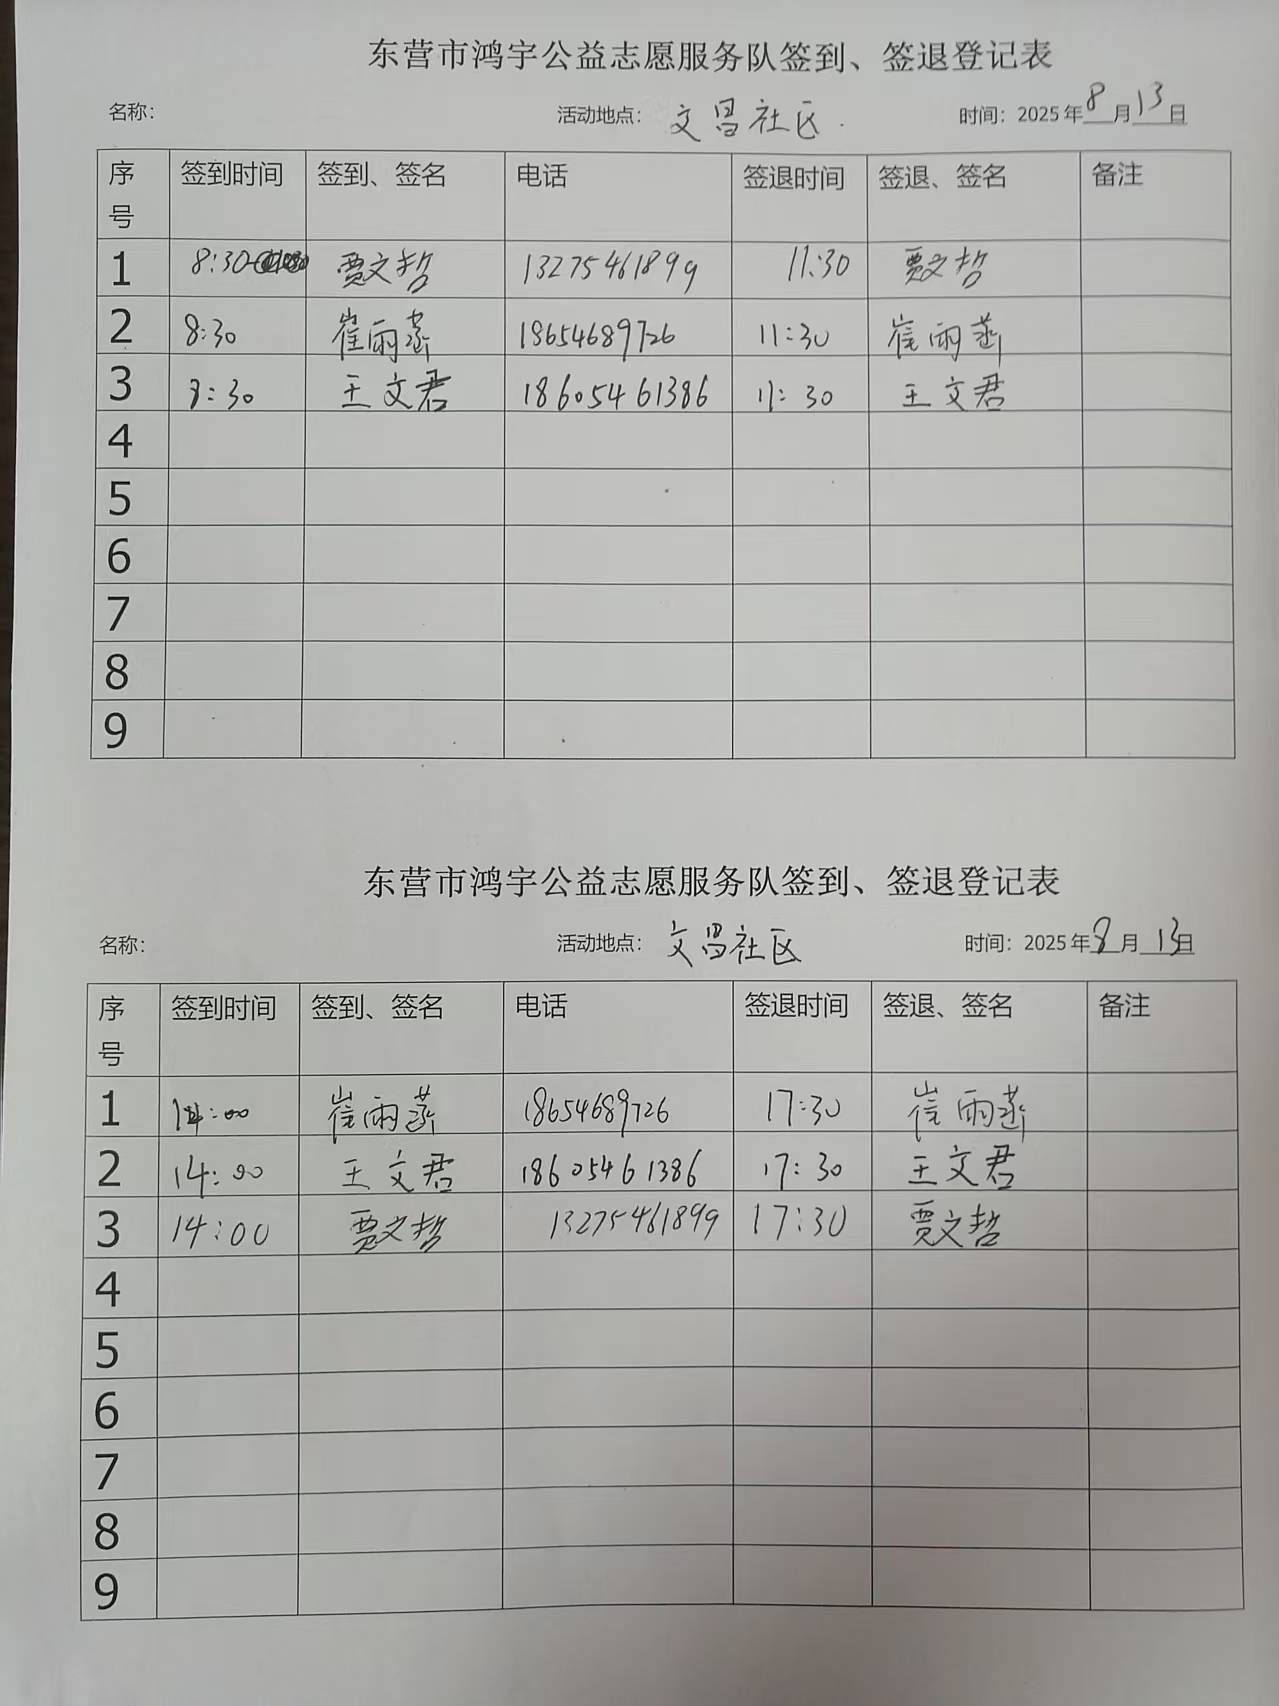 东营市鸿宇公益志愿服务队签到、签退登记表
名称： 活动地点： 文昌社区. 时间：2025年8月13日
序号 签到时间 签到、签名 电话 签退时间 签退、签名 备注
1 8:30 贾文哲 13275461899 11:30 贾文哲
2 8:30 崔雨菡 18654689726 11:30 崔雨菡
3 8:30 王文君 18605461386 11:30 王文君
4
5
6
7
8
9
东营市鸿宇公益志愿服务队签到、签退登记表
名称： 活动地点： 文昌社区 时间：2025年8月13日
序号 签到时间 签到、签名 电话 签退时间 签退、签名 备注
1 14:00 崔雨菡 18654689726 17:30 崔雨菡
2 14:00 王文君 18605461386 17:30 王文君
3 14:00 贾文哲 13275461899 17:30 贾文哲
4
5
6
7
8
9